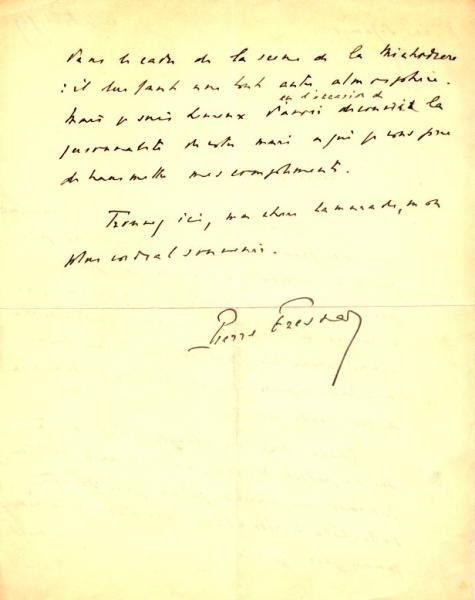 dans le cadre de la scène de la Michodière
: il lui faut une tout autre atmosphère.
Mais je suis heureux d'avoir eu l'occasion de découvrir la
personnalité de votre mari à qui je vous prie
de transmettre mes compliments.
Trouvez ici, ma chère camarade, mon
plus cordial souvenir.
Pierre Fresnay